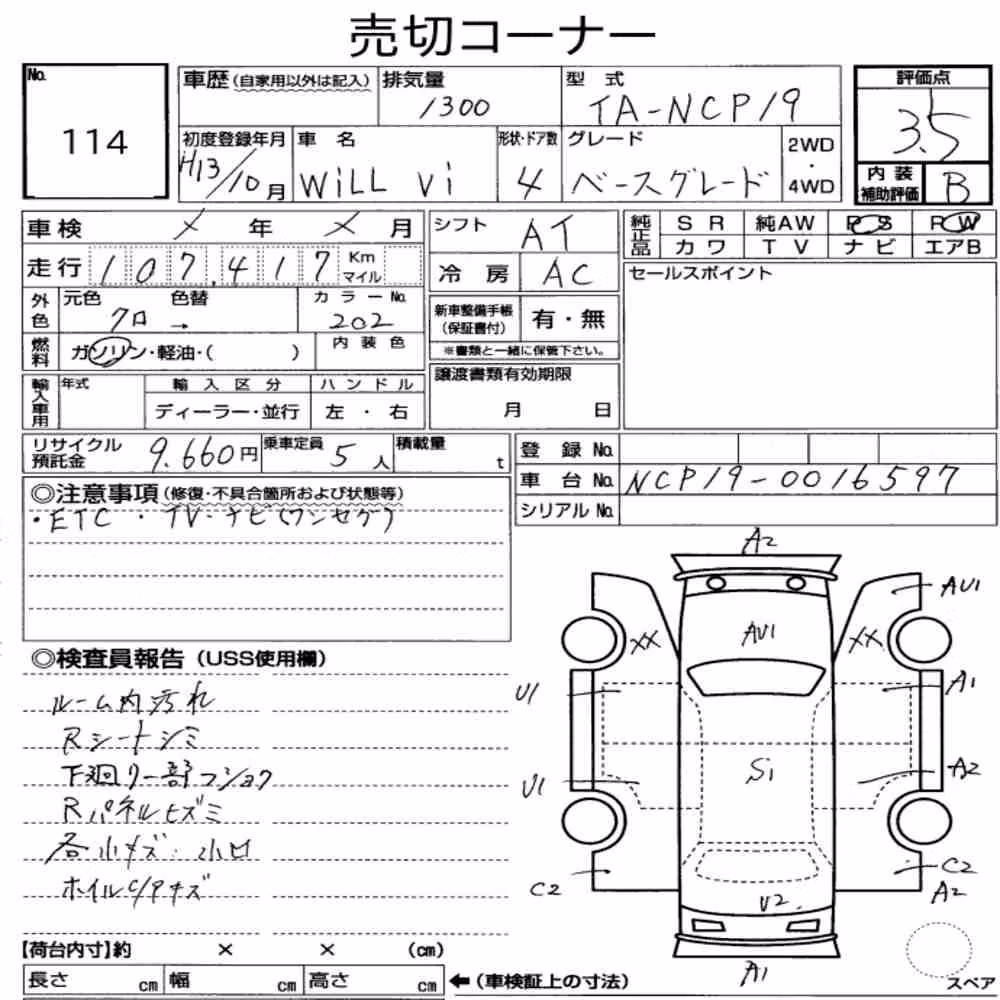 売切コーナー
No.
114
車歴(自家用以外は記入)
排気量
1300
型 式
TA-NCP19
評価点
3.5
初度登録年月
H13/10月
車 名
WiLL Vi
形状・ドア数
4
グレード
ベースグレード
2WD
・
4WD
内装
補助評価
B
車検 メ 年 メ 月
シフト AT
純正品
SR 純AW PS PW
カワ TV ナビ エアB
走行 107,417 Km
マイル
冷 房 AC
セールスポイント
外色
元色 色替
クロ →
カラーNo.
202
新車整備手帳
(保証書付)
有・無
※書類と一緒に保管下さい。
燃料
ガソリン・軽油・( )
内装色
輸入車用
年式
輸入区分
ディーラー・並行
ハンドル
左 ・ 右
譲渡書類有効期限
月 日
リサイクル
預託金
9.660円
乗車定員 5人
積載量 t
登 録 No.
車 台 No. NCP19-0016597
シリアル No.
◎注意事項(修復・不具合箇所および状態等)
・ETC ・TV・ナビ(ワンセグ)
◎検査員報告(USS使用欄)
ルーム内汚れ
Rシートシミ
下廻り一部フショク
Rパネルヒズミ
各小キズ・小凹
ホイルC/Pキズ
A2
AU1
XX
AU1
XX
U1
A1
S1
U1
A2
C2
C2
A2
U2
A1
スペア
【荷台内寸】約 × × (cm)
長さ cm 幅 cm 高さ cm
←(車検証上の寸法)